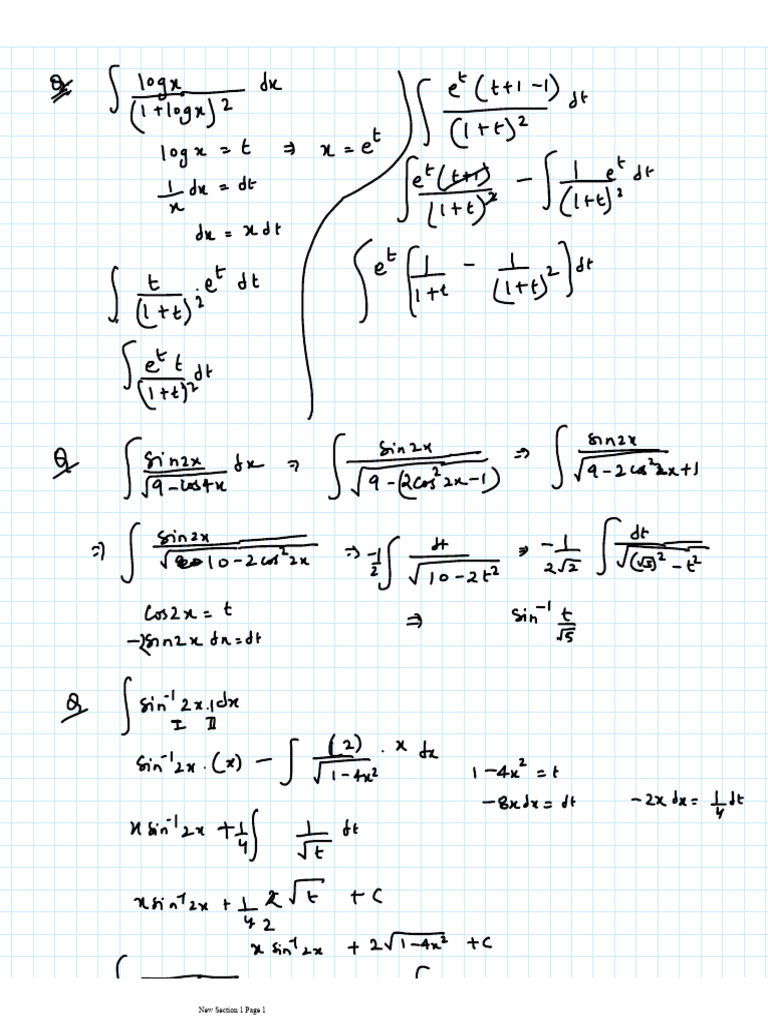 Q ∫ logx/(1+logx)^2 dx
logx = t ⇒ x = e^t
1/x dx = dt
dx = x dt
∫ t/(1+t)^2 . e^t dt
∫ e^t t/(1+t)^2 dt
∫ e^t (t+1-1)/(1+t)^2 dt
∫ e^t (t+1)/(1+t)^2 - ∫ 1/(1+t)^2 e^t dt
∫ e^t [1/(1+t) - 1/(1+t)^2] dt
Q ∫ sin2x/√(9-cos4x) dx ⇒ ∫ sin2x/√(9-(2cos^2 2x-1)) ⇒ ∫ sin2x/√(9-2cos^2 2x+1)
⇒ ∫ sin2x/√(10-2cos^2 2x) ⇒ -1/2 ∫ dt/√(10-2t^2) ⇒ -1/(2√2) ∫ dt/√((√5)^2-t^2)
cos2x = t
-2sin2x dx = dt
⇒ sin^-1 t/√5
Q ∫ sin^-1 2x.1dx
I II
sin^-1 2x.(x) - ∫ (2)/√(1-4x^2) . x dx
1-4x^2 = t
-8xdx = dt -2xdx = 1/4 dt
x sin^-1 2x + 1/4 ∫ 1/√t dt
x sin^-1 2x + 1/4 2√t + C
2
x sin^-1 2x + 2√(1-4x^2) + C
New Section 1 Page 1